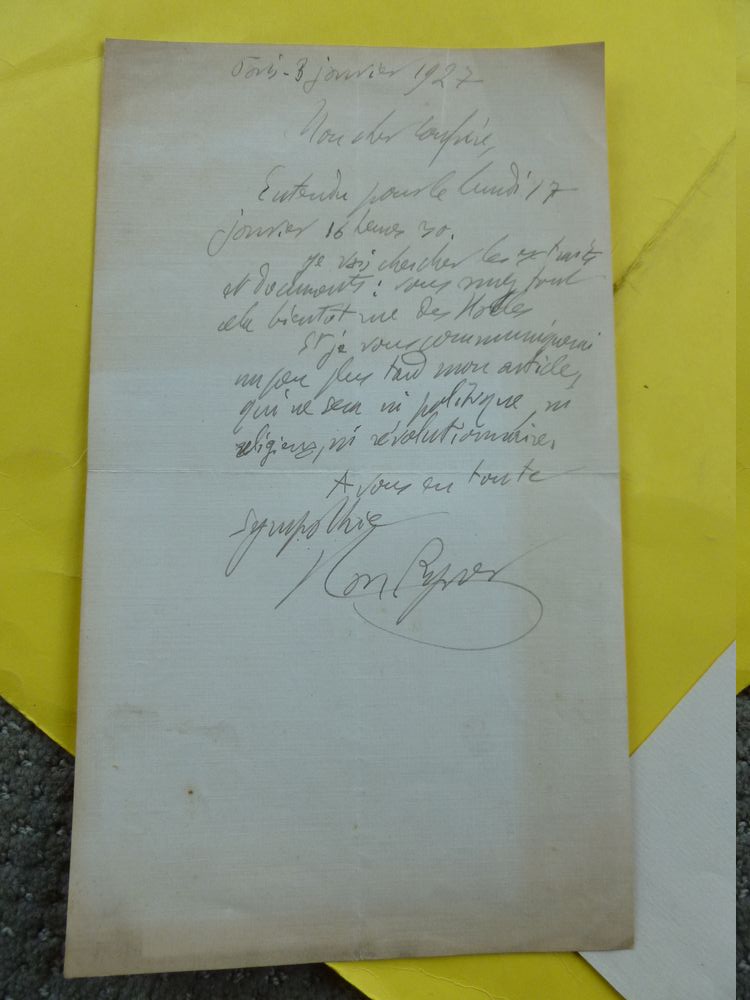 Paris - 3 janvier 1927
Mon cher confrère,
Entendu pour le lundi 17
janvier 16 heures 30.
Je vais chercher les extraits
et documents : vous aurez tout
cela bientôt rue des
Et je vous communiquerai
un peu plus tard mon article,
qui ne sera ni politique, ni
religieux, ni révolutionnaire.
A vous en toute
sympathie
Han Ryner